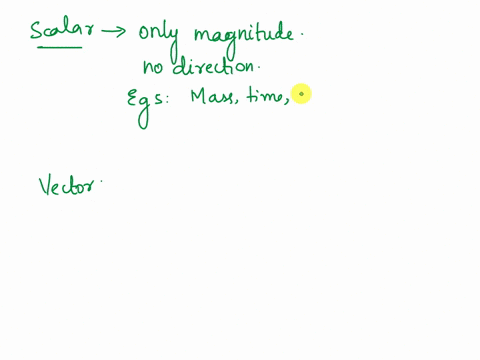 Scalar → only magnitude.
no direction.
Egs: Mass, time,
Vector.